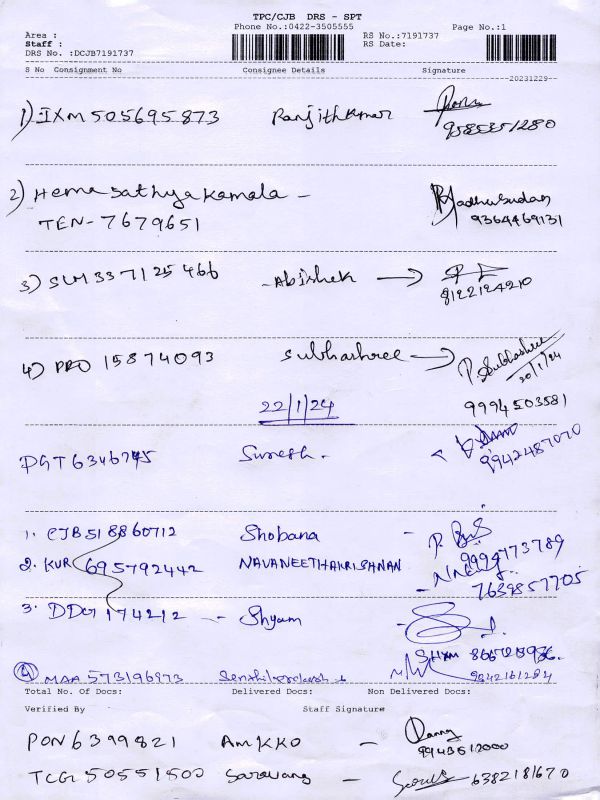 TPC/CJB DRS - SPT
Phone No.:0422-3505555
Page No.:1
Area :
Staff :
DRS No. :DCJB7191737
RS No.:7191737
RS Date:
S No Consignment No Consignee Details Signature
20231229
1) IXM 505695873 Ranjithkumar
9585351280
2) Hema Sathya Kamala - Madhusudan
TEN-7679651 9364469131
3) SLM 337125466 - Abishek
8122124210
4) PRO 15874093 Subhashree P. Subhashree
20/1/24
22/1/24 9994503581
PGT6346745 Suresh.
9942487070
1. CJB518860712 Shobana -
9994773789
2. KUR 695792442 NAVANEETHAKRISHNAN -
7639857705
3. DDG174212 - Shyam
SHYM
4 MAA 573196973
9842161284
Total No. Of Docs: Delivered Docs: Non Delivered Docs:
Verified By Staff Signature
PON6399821 AMKKO -
9943512000
TCG 50551500 Saravang - 6382181670